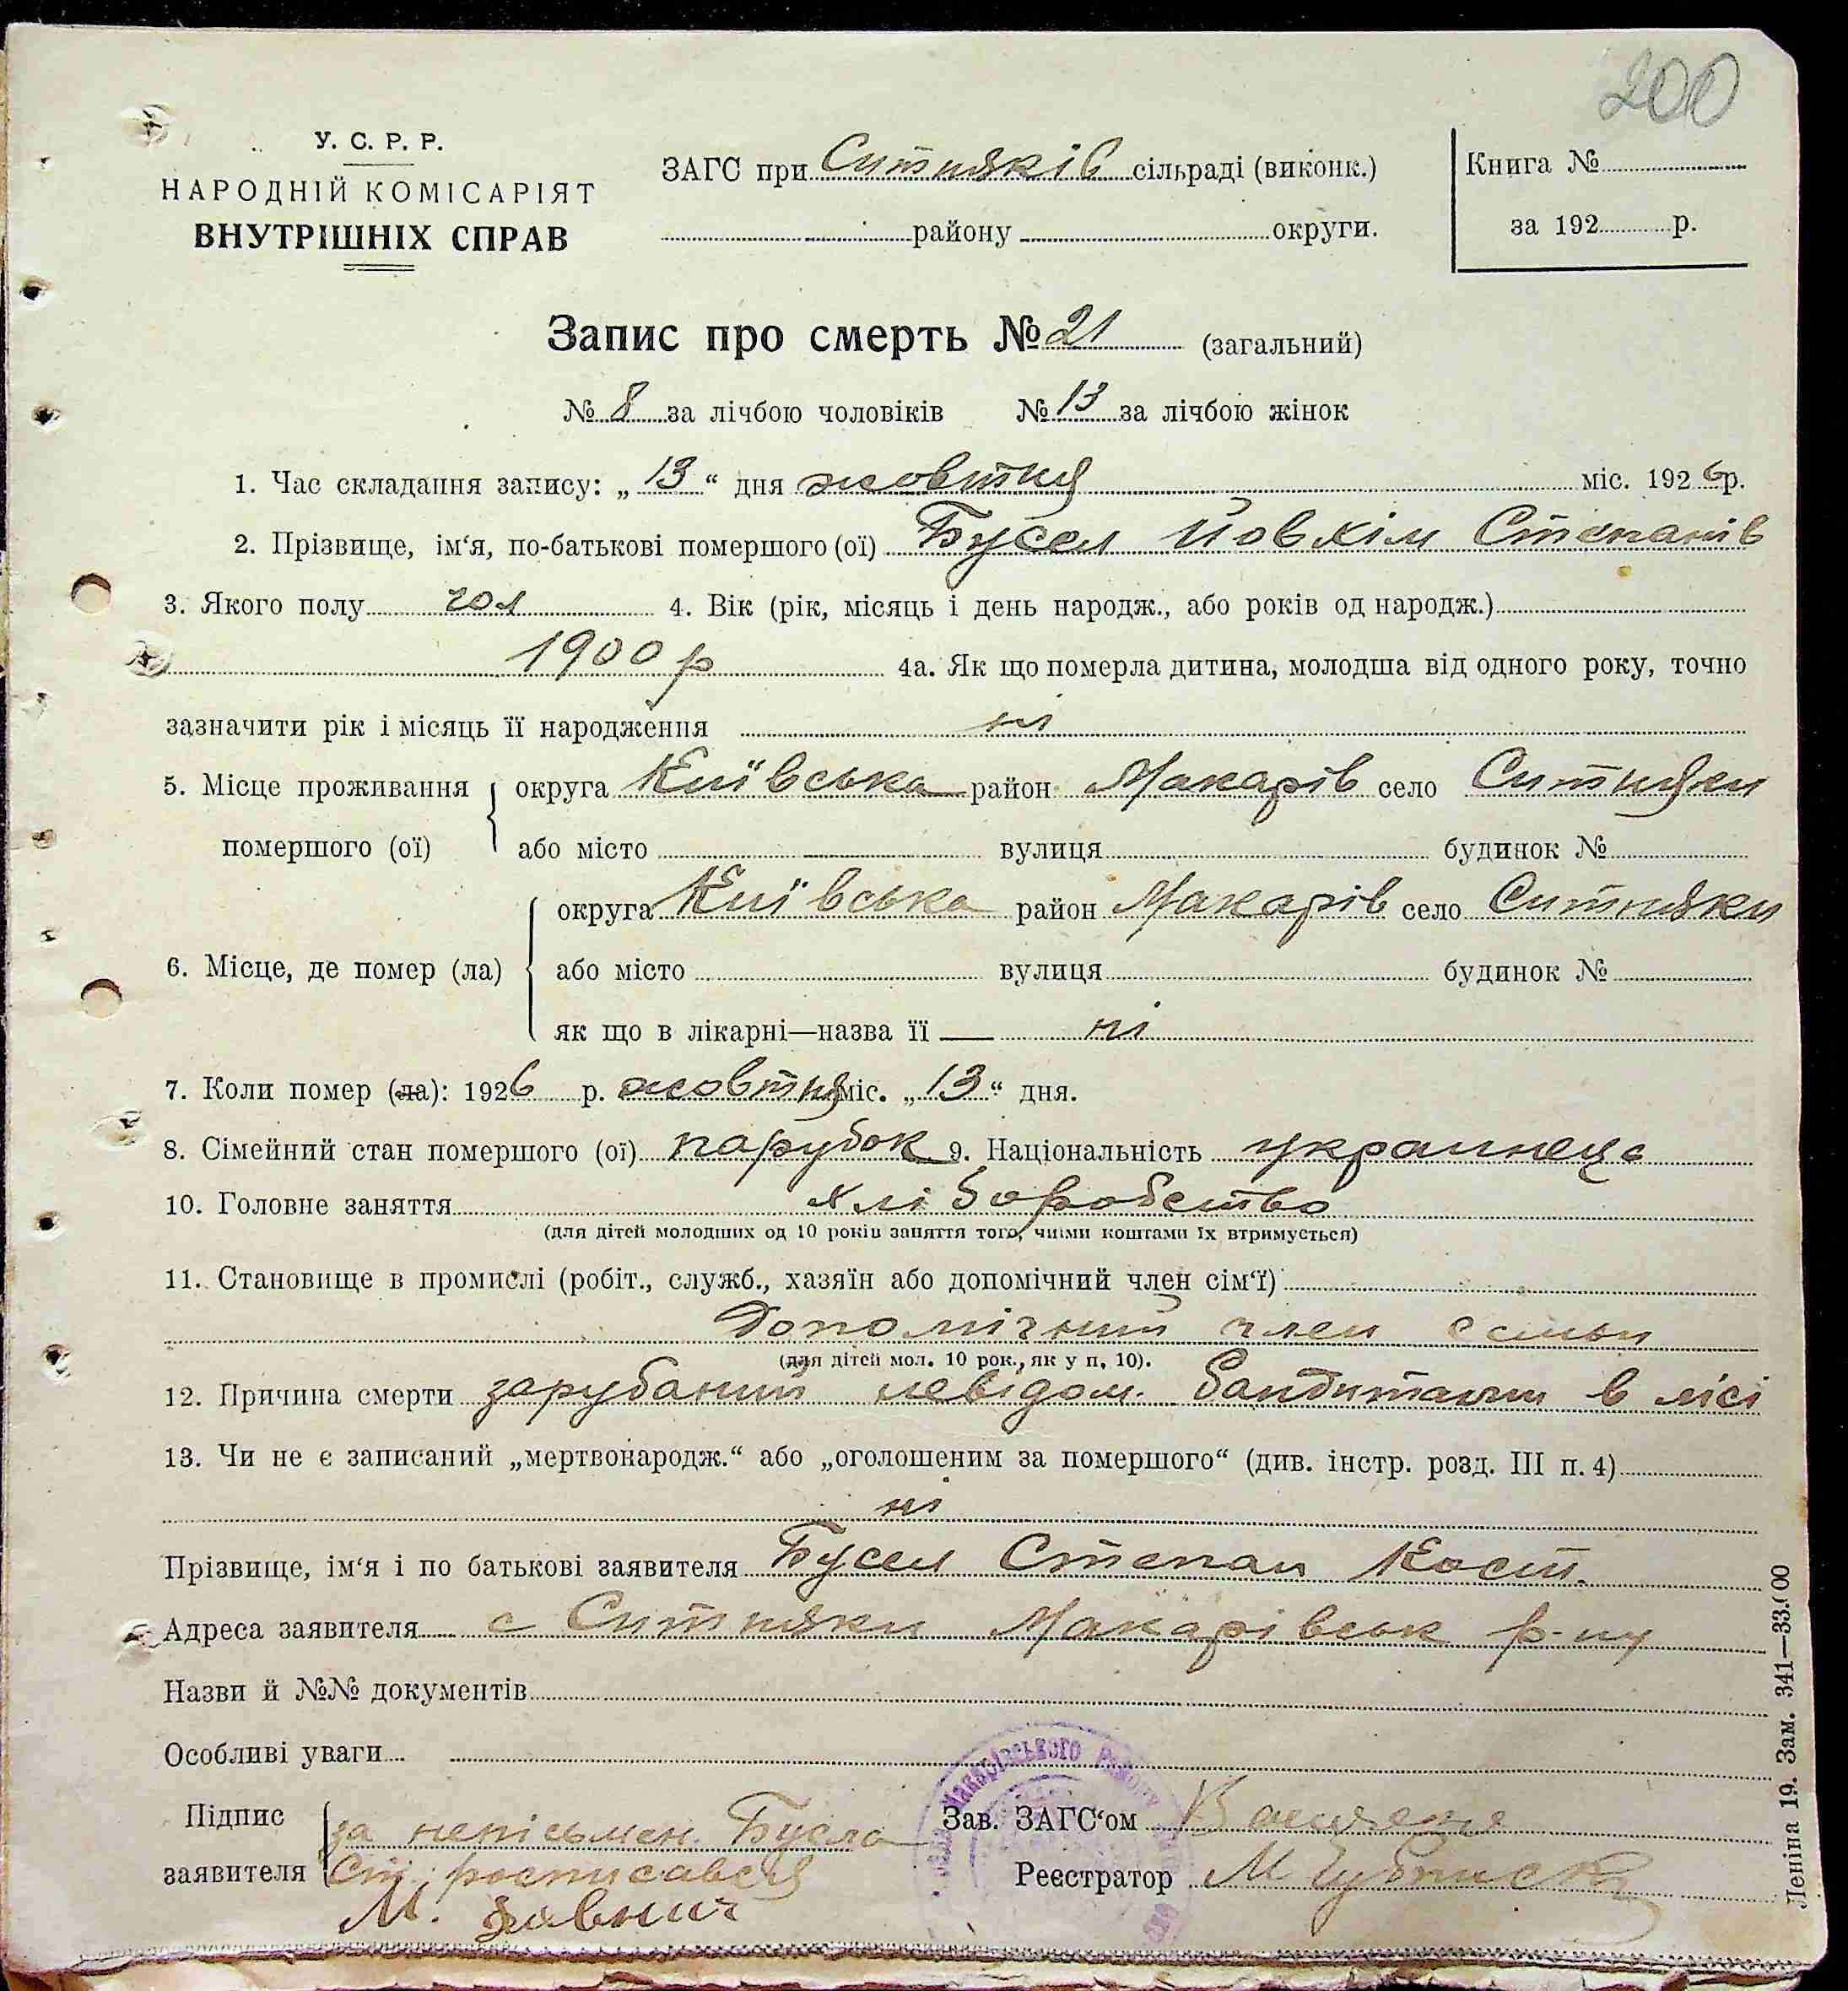 200
У. С. Р. Р.
НАРОДНІЙ КОМІСАРІЯТ
ВНУТРІШНІХ СПРАВ
ЗАГС при Ситняків сільраді (виконк.)
району округи.
Книга №
за 192 р.
Запис про смерть № 21 (загальний)
№ 8 за лічбою чоловіків № 13 за лічбою жінок
1. Час складання запису: „13“ дня жовтня міс. 1926 р.
2. Прізвище, ім‘я, по-батькові помершого (ої) Бусел Йовхім Степанів
3. Якого полу чол 4. Вік (рік, місяць і день народж., або років од народж.)
1900 р 4а. Як що померла дитина, молодша від одного року, точно
зазначити рік і місяць її народження ні
5. Місце проживання помершого (ої) округа Київська район Макарів село Ситняки
або місто вулиця будинок №
6. Місце, де помер (ла) округа Київська район Макарів село Ситняки
або місто вулиця будинок №
як що в лікарні—назва її — ні
7. Коли помер (ла): 1926 р. жовтня міс. „13“ дня.
8. Сімейний стан помершого (ої) парубок 9. Національність украинець
10. Головне заняття хліборобство
(для дітей молодших од 10 років заняття того, чиїми коштами їх втримується)
11. Становище в промислі (робіт., служб., хазяїн або допомічний член сім‘ї)
Допомічний член семьи
(для дітей мол. 10 рок., як у п. 10).
12. Причина смерти зарубаний невідом. бандитами в лісі
13. Чи не є записаний „мертвонародж.“ або „оголошеним за помершого“ (див. інстр. розд. III п. 4)
ні
Прізвище, ім‘я і по батькові заявителя Бусел Степан Кост.
Адреса заявителя с Ситняки Макарівськ р-ну
Назви й №№ документів
Особливі уваги
Підпис заявителя за непісьмен. Бусла
Ст. росписався
М.
Зав. ЗАГС‘ом
Реєстратор М
Макарівського Району
Леніна 19. Зам. 341—33.000